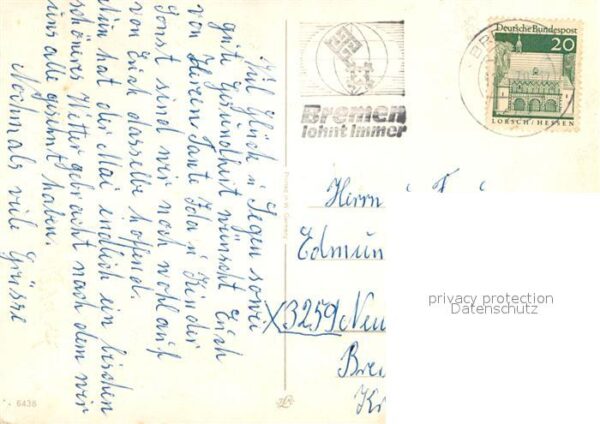 Viel Glück u Segen sowie
gute Gesundheit wünscht Euch
von Herzen Tante Ida u Kinder
Sonst sind wir noch wohlauf
von Euch dasselbe hoffend.
Nun hat der Mai endlich ein bischen
schöneres Wetter gebracht nach dem wir
uns alle gesehnt haben.
Nochmals viele Grüsse
6438
Printed in W. Germany
Bremen
lohnt immer
Deutsche Bundespost
20
LORSCH / HESSEN
Herrn u
Edmun
X3259 Neu
Bre
Kr
privacy protection
Datenschutz